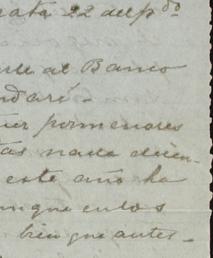 rata 22 del pdo
rle al Banco
ndaré.-
ier pormenores
tas nada dicen
este año ha
unque en los
bien que antes-